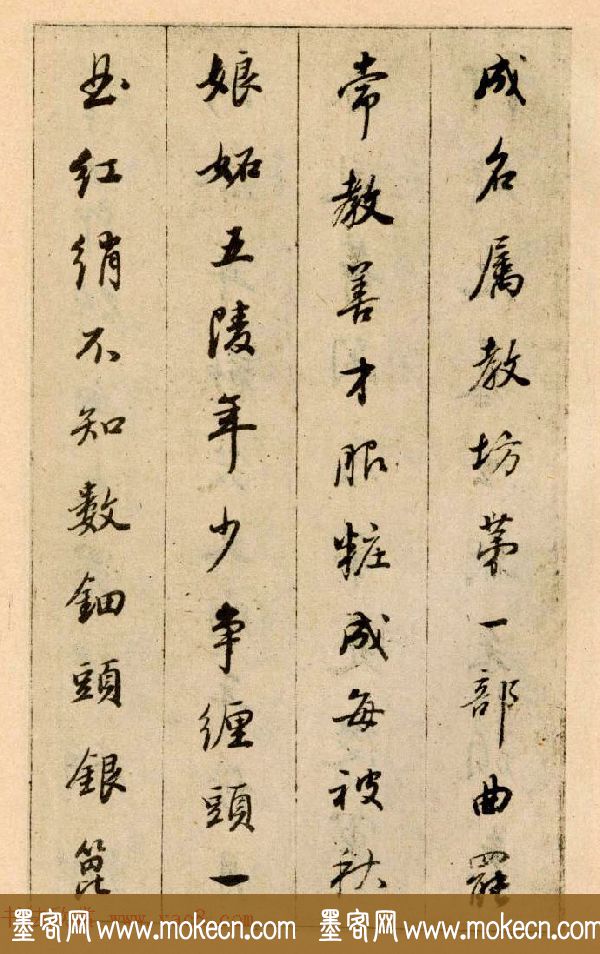 成名属教坊苐一部曲罷
常教善才服粧成每被秋
娘妬五陵年少争纏頭一
曲红绡不知數鈿頭銀篦
墨客网 www.mokecn.com 墨客网 www.mokecn.com